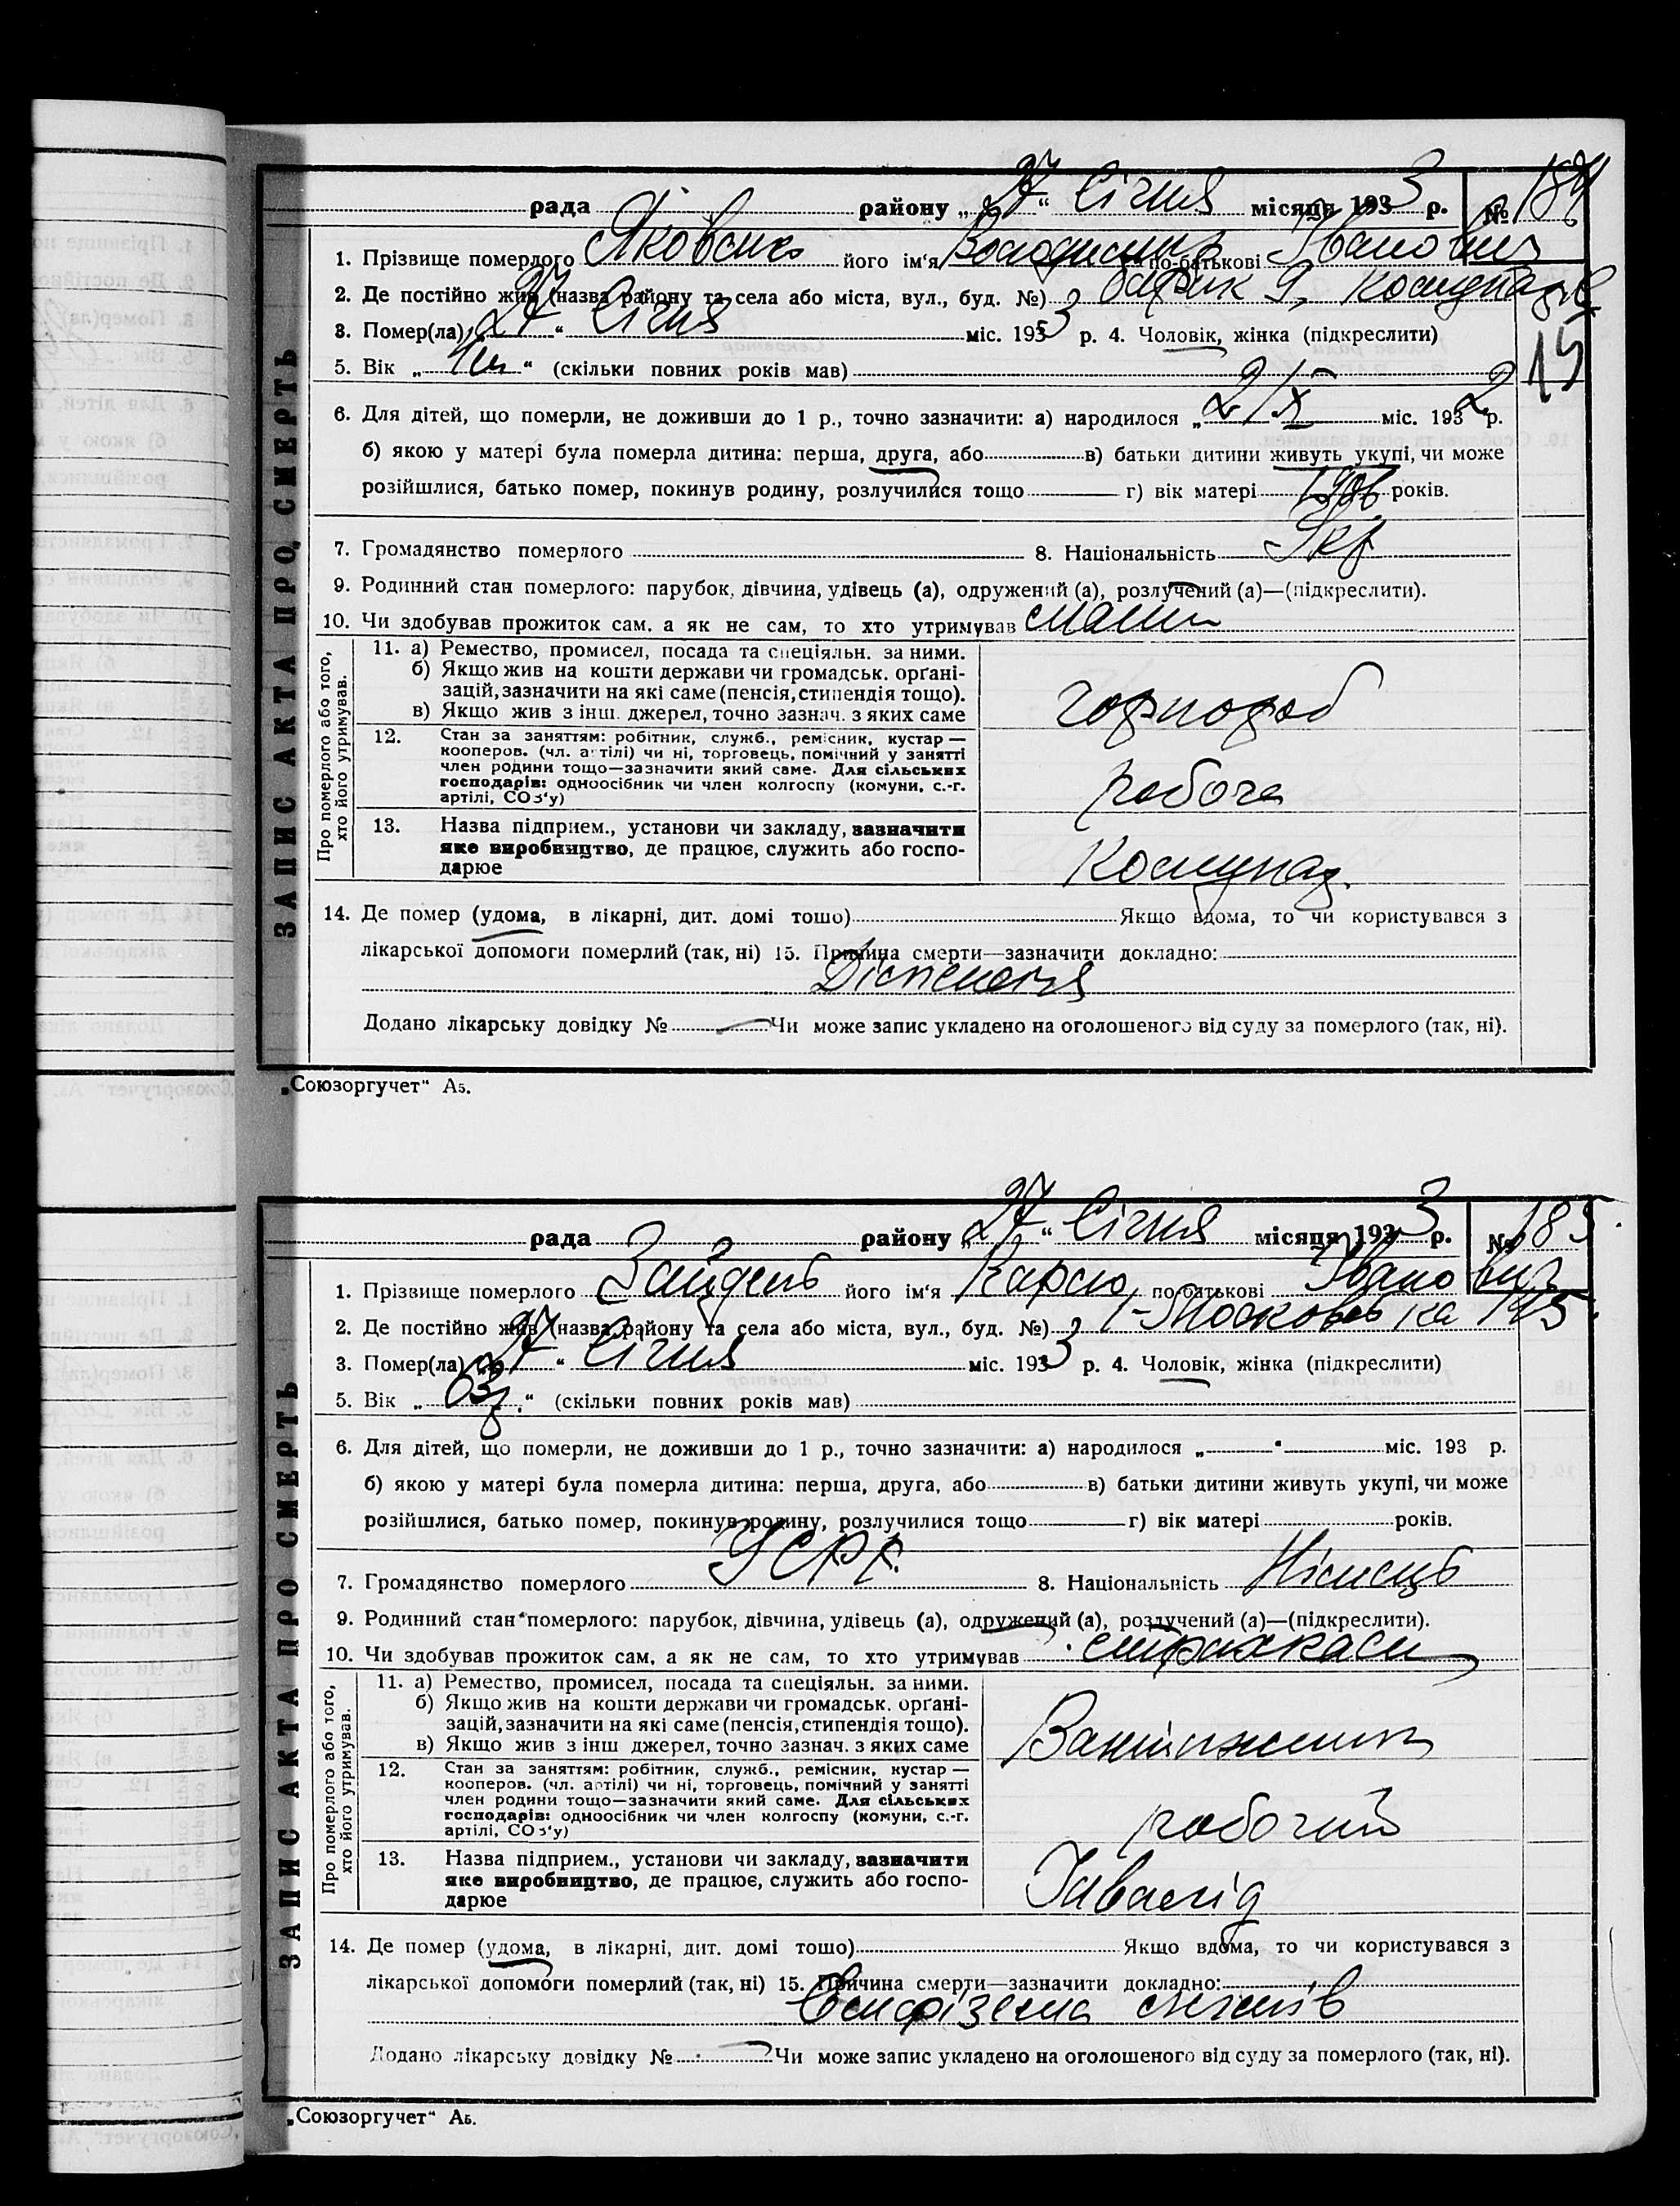 ЗАПИС АКТА ПРО СМЕРТЬ
рада району „27“ Січня місяця 1933 р. № 184
1. Прізвище померлого Яковенко його ім'я Володимир по-батькові Іванович
2. Де постійно жив (назва району та села або міста, вул., буд. №) барак 9,
3. Помер(ла) „27“ Січня міс. 1933 р. 4. Чоловік, жінка (підкреслити)
15
5. Вік „“ (скільки повних років мав)
6. Для дітей, що померли, не доживши до 1 р., точно зазначити: а) народилося „2/X міс. 1932 р.
б) якою у матері була померла дитина: перша, друга, або в) батьки дитини живуть укупі, чи може
розійшлися, батько помер, покинув родину, розлучилися тощо г) вік матері 1906 років.
7. Громадянство померлого 8. Національність Укр
9. Родинний стан померлого: парубок, дівчина, удівець (а), одружений (а), розлучений (а)—(підкреслити).
10. Чи здобував прожиток сам, а як не сам, то хто утримував мати
Про померлого або того,
хто його утримував.
11. а) Ремество, промисел, посада та спеціяльн. за ними.
б) Якщо жив на кошти держави чи громадськ. орґані-
зацій, зазначити на які саме (пенсія, стипендія тощо).
в) Якщо жив з інш. джерел, точно зазнач. з яких саме
чорнороб
12. Стан за заняттям: робітник, служб., ремісник, кустар —
кооперов. (чл. артілі) чи ні, торговець, помічний у занятті
член родини тощо—зазначити який саме. Для сільських
господарів: одноосібник чи член колгоспу (комуни, с.-г.
артілі, СОЗ'у)
робоча
13. Назва підприєм., установи чи закладу, зазначити
яке виробництво, де працює, служить або госпо-
дарює
14. Де помер (удома, в лікарні, дит. домі тощо) Якщо вдома, то чи користувався з
лікарської допомоги померлий (так, ні) 15. Причина смерти—зазначити докладно:
Діспепсія
Додано лікарську довідку № Чи може запис укладено на оголошеного від суду за померлого (так, ні).
„Союзоргучет“ А5.
ЗАПИС АКТА ПРО СМЕРТЬ
рада району „27“ Січня місяця 1933 р. № 185
1. Прізвище померлого Зайдель його ім'я Карло по-батькові Іванович
2. Де постійно жив (назва району та села або міста, вул., буд. №) 1-Московська 145
3. Помер(ла) „27“ Січня міс. 1933 р. 4. Чоловік, жінка (підкреслити)
5. Вік „63р.“ (скільки повних років мав)
6. Для дітей, що померли, не доживши до 1 р., точно зазначити: а) народилося „ “ міс. 193 р.
б) якою у матері була померла дитина: перша, друга, або в) батьки дитини живуть укупі, чи може
розійшлися, батько помер, покинув родину, розлучилися тощо г) вік матері років.
7. Громадянство померлого УСРР. 8. Національність Німець
9. Родинний стан померлого: парубок, дівчина, удівець (а), одружений (а), розлучений (а)—(підкреслити).
10. Чи здобував прожиток сам, а як не сам, то хто утримував страхкаси
Про померлого або того,
хто його утримував.
11. а) Ремество, промисел, посада та спеціяльн. за ними.
б) Якщо жив на кошти держави чи громадськ. орґані-
зацій, зазначити на які саме (пенсія, стипендія тощо).
в) Якщо жив з інш джерел, точно зазнач. з яких саме
Вантажник
12. Стан за заняттям: робітник, служб., ремісник, кустар —
кооперов. (чл. артілі) чи ні, торговець, помічний у занятті
член родини тощо—зазначити який саме. Для сільських
господарів: одноосібник чи член колгоспу (комуни, с.-г.
артілі, СОЗ'у)
робочий
13. Назва підприєм., установи чи закладу, зазначити
яке виробництво, де працює, служить або госпо-
дарює
Інвалід
14. Де помер (удома, в лікарні, дит. домі тошо) Якщо вдома, то чи користувався з
лікарської допомоги померлий (так, ні) 15. Причина смерти—зазначити докладно:
Емфізема легенів
Додано лікарську довідку № Чи може запис укладено на оголошеного від суду за померлого (так, ні).
„Союзоргучет“ А5.